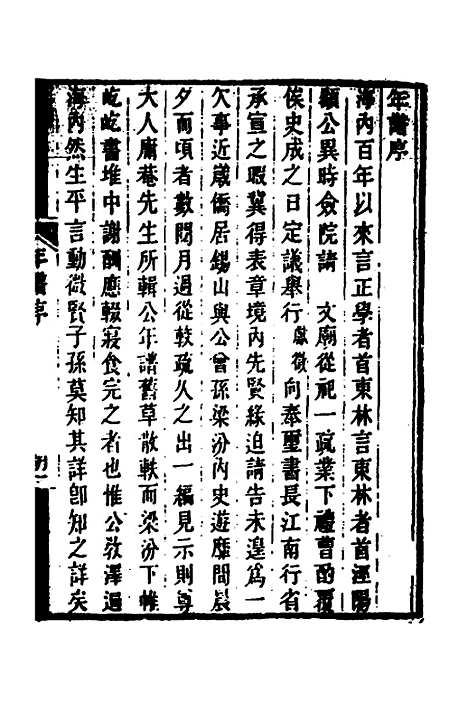 年譜序
海內百年以來言正學者首東林言東林者首涇陽
顧公異時僉院請　文廟從祀一疏業下禮曹酌覆
俟史成之日定議舉行獻徵向奉璽書長江南行省
承宣之暇冀得表章境內先賢緣迫請告未遑爲一
欠事近歲僑居錫山與公曾孫梁汾內史遊靡間晨
夕而頃者數閱月過從較疏久之出一編見示則尊
大人庸菴先生所輯公年譜舊草散軼而梁汾下帷
屹屹書堆中謝酬應輟寢食完之者也惟公敎澤遍
海內然生平言動微賢子孫莫知其詳卽知之詳矣
年譜序